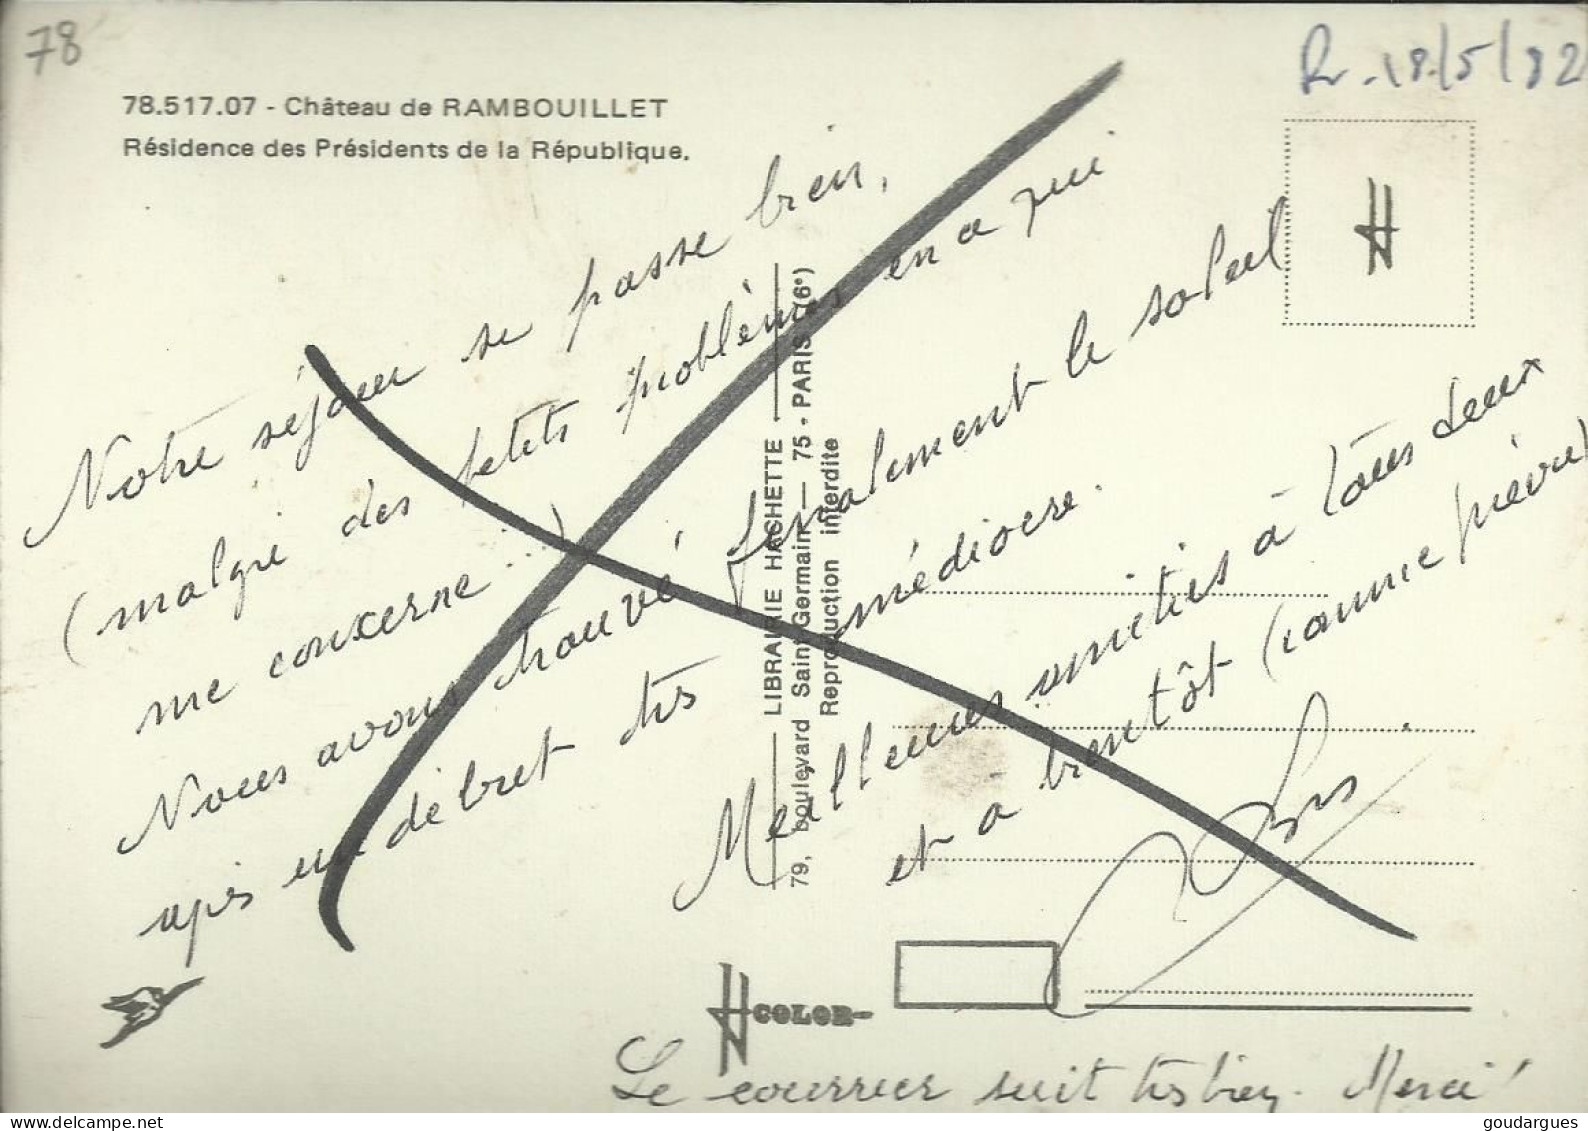 78
R. 18/5/82
78.517.07 - Château de RAMBOUILLET
Résidence des Présidents de la République.
Notre séjour se passe bien,
(malgré des petits problèmes en a qui
me concerne..)
Nous avons trouvé finalement le soleil
après un début très médiocre.
Meilleures amitiés à tous deux
et à bientôt (comme prévu)
LIBRAIRIE HACHETTE
79, boulevard Saint-Germain — 75 - PARIS (6e)
Reproduction interdite
COLOR
Le courrier suit très bien. Merci!
goudargues